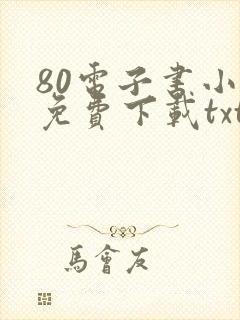 80電子書小
免費下載txt
馬會友